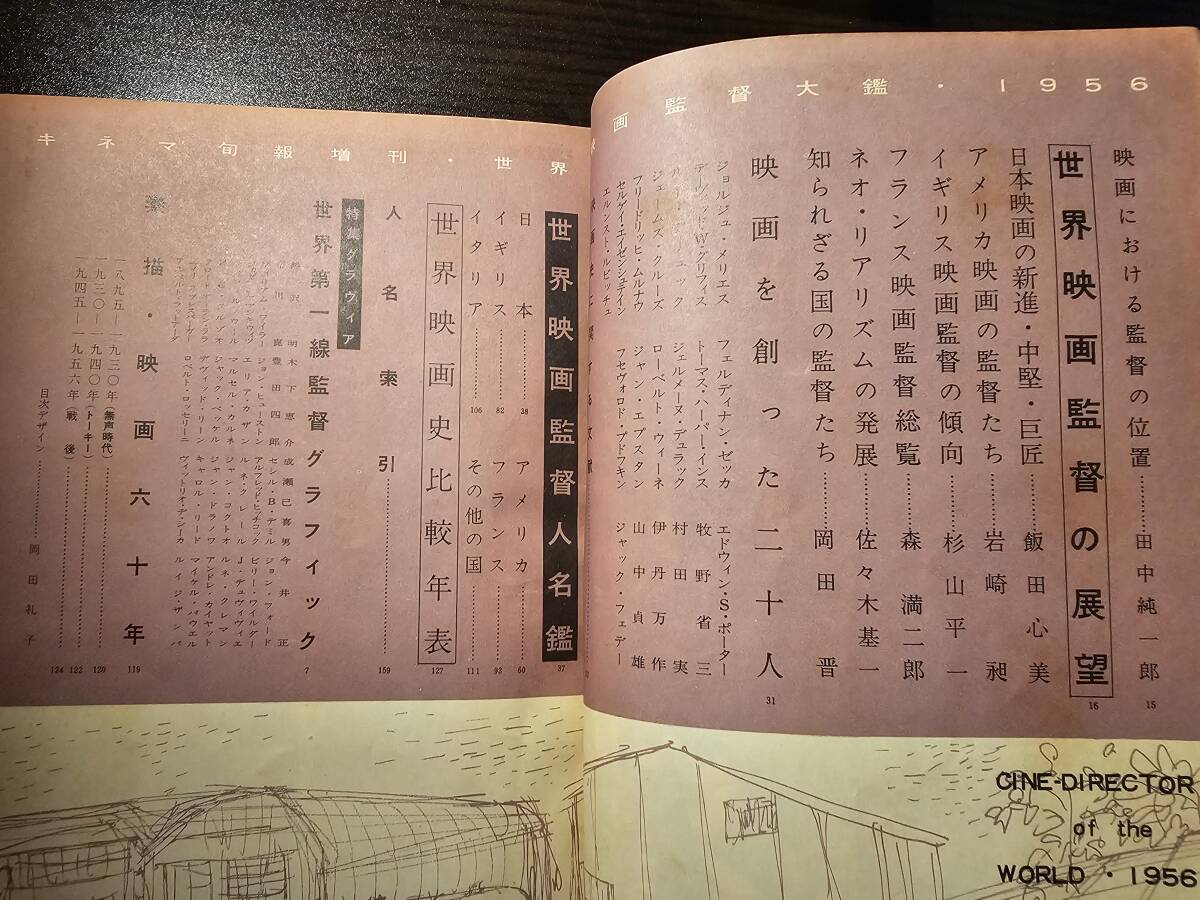 キネマ旬報増刊・世界
画監督大鑑・1956
映画における監督の位置………田中純一郎 15
世界映画監督の展望 16
日本映画の新進・中堅・巨匠……飯田心美
アメリカ映画の監督たち……岩崎昶
イギリス映画監督の傾向……杉山平一
フランス映画監督総覧……森満二郎
ネオ・リアリズムの発展……佐々木基一
知られざる国の監督たち……岡田晋
映画を創った二十人 31
ジョルジュ・メリエス フェルディナン・ゼッカ エドウィン・S・ポーター
デーヴッド・W・グリフィス トーマス・ハーパー・インス 牧野省三
ジェルメーヌ・デュラック 村田実
ジェームス・クルーズ ローベルト・ウィーネ 伊丹万作
フリードリッヒ・ムルナウ ジャン・エプスタン 山中貞雄
セルゲイ・エイゼンシュテイン フセヴォロド・プドフキン ジャック・フェデー
エルンスト・ルビッチュ
世界映画監督人名鑑 37
日本……38 アメリカ……60
イギリス……82 フランス……93
イタリア……106 その他の国……111
世界映画史比較年表 127
人名索引……159
特集グラヴィア
世界第一線監督グラフィック 7
木下恵介 成瀬巳喜男 今井正
豊田四郎 セシル・B・デミル ジョン・フォード
ジョン・ヒューストン アルフレッド・ヒッチコック ビリー・ワイルダー
エリア・カザン ルネ・クレール J・デュヴィヴィエ
マルセル・カルネ ジャン・コクトオ ルネ・クレマン
ジャック・ベッケル ジャン・ドラノワ アンドレ・カイヤット
デヴィッド・リーン キャロル・リード マイケル・パウエル
ロベルト・ロッセリーニ ヴィットリオ・デ・シーカ ルイジ・ザンパ
素描・映画六十年 119
一八九五―一九三〇年(無声時代)……120
一九三〇―一九四〇年(トーキー)……122
一九四五―一九五六年(戦後)……124
目次デザイン……岡田礼子
CINE-DIRECTOR
of the
WORLD・1956